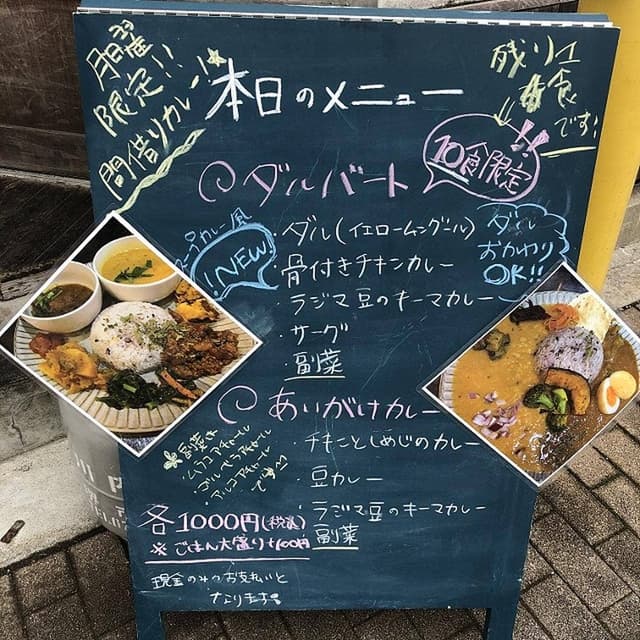 月曜
限定!!
間借りカレー!
本日のメニュー
残り
食
です!
ダルバート
10食限定!!
カレー風
NEW!
・ダル(イエロームングダール)
・骨付きチキンカレー
・ラジマ豆のキーマカレー
・サーグ
・副菜
ダル
おかわり
OK!!
あいがけカレー
・チキンとしめじのカレー
・豆カレー
・ラジマ豆のキーマカレー
・副菜
副菜
アチャール
アチャール
・アルコアチャール
です
各1000円(税込)
※ごはん大盛り+100円
現金のみのお支払いと
なります。